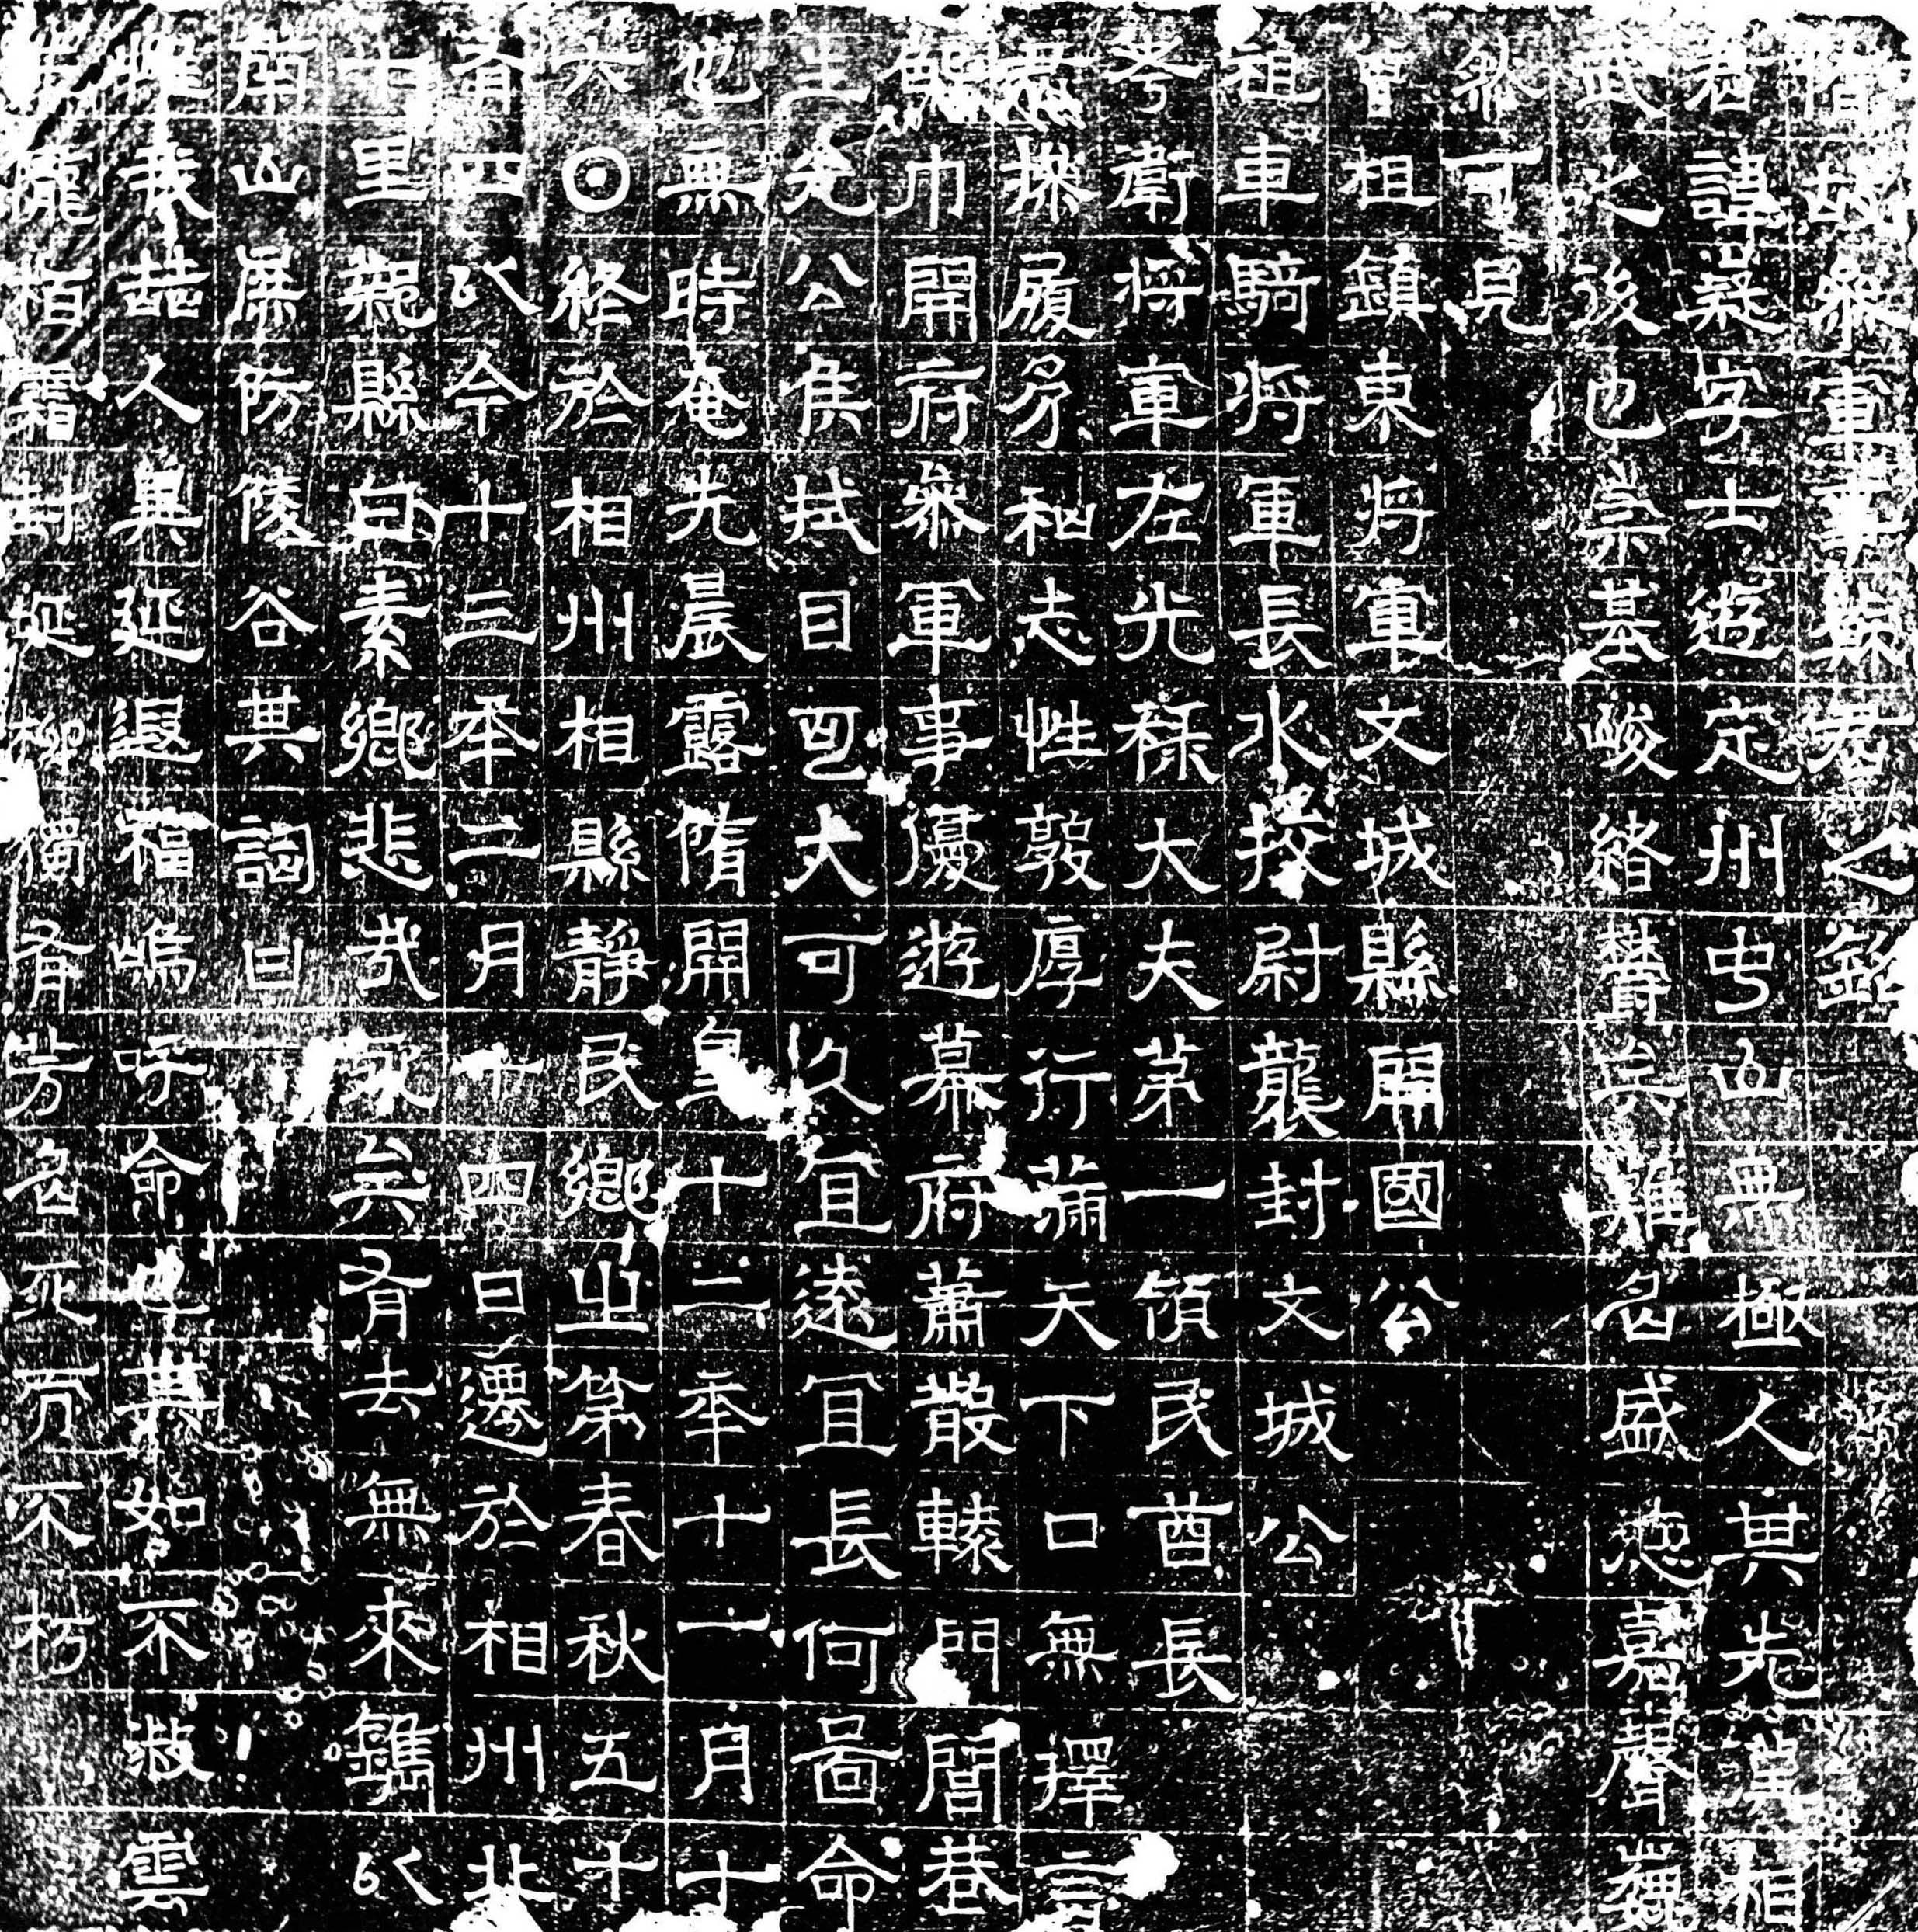 隋故叅軍事縣君之銘
君諱嶷字士遊定州中山無極人其先漢相
武之後也崇基峻緒欝矣難名盛德嘉聲巍
然可見
曾祖鎮東將軍文城縣開國公
祖車騎將軍長水挍尉襲封文城公
考衛將軍左光祿大夫第一領民酋長
君操履多和志性敦厚行滿天下口無擇言
巾開府叅軍事優遊幕府蕭散轅門閭巷
王尭公侯拭目可大可久宜遠宜長何啚命
也無時奄先晨露隋開皇十二年十一月十
六日終於相州相縣靜民鄉之第春秋五十
有四以今十三年二月十四日遷於相州北
十里親縣白素鄉悲哉永矣有去無來鐫以
南山庶防陵谷其詞曰
惟哉喆人異延遐福嗚呼命也其如不淑雲
栢霜封埏柳獨有芳名死而不朽